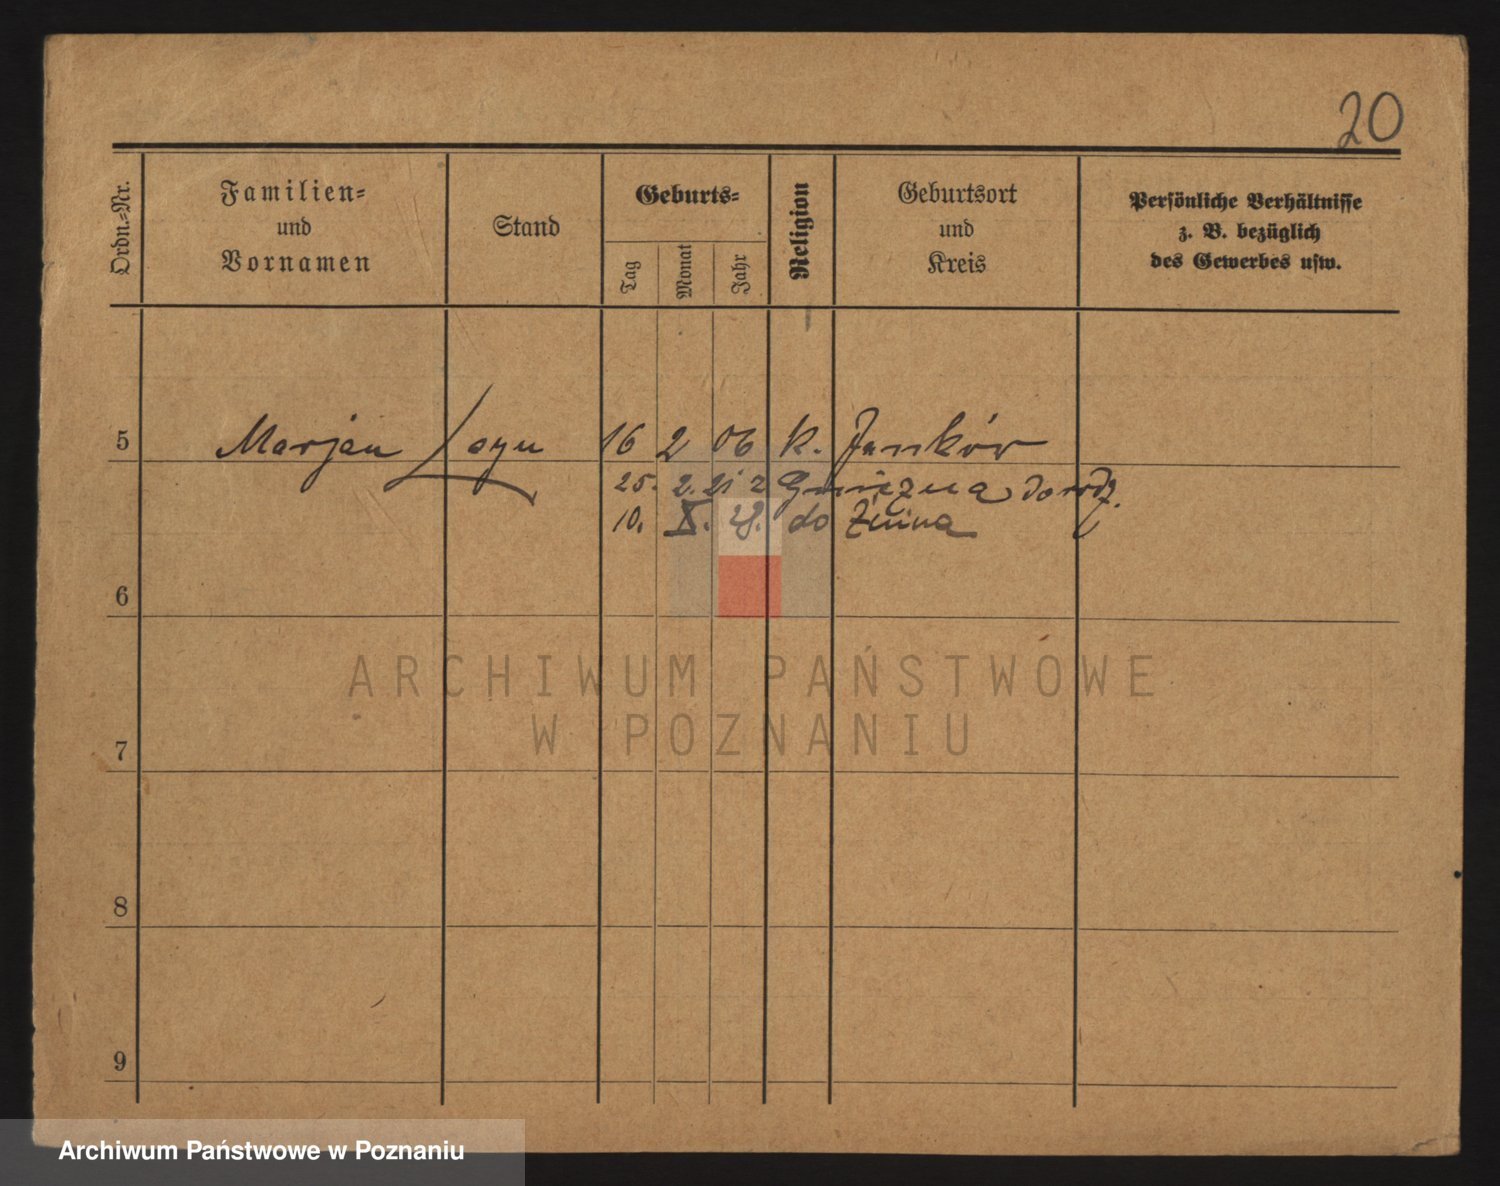 20
Ordn.-Nr.
Familien-
und
Vornamen
Stand
Geburts-
Tag
Monat
Jahr
Religion
Geburtsort
und
Kreis
Persönliche Verhältnisse
z. B. bezüglich
des Gewerbes usw.
5 Marjan syn 16 2 06 k. Janków
25. 2. 21 z Gniezna
10. X. 28. do Żnina
6
ARCHIWUM PAŃSTWOWE
W POZNANIU
7
8
9
Archiwum Państwowe w Poznaniu